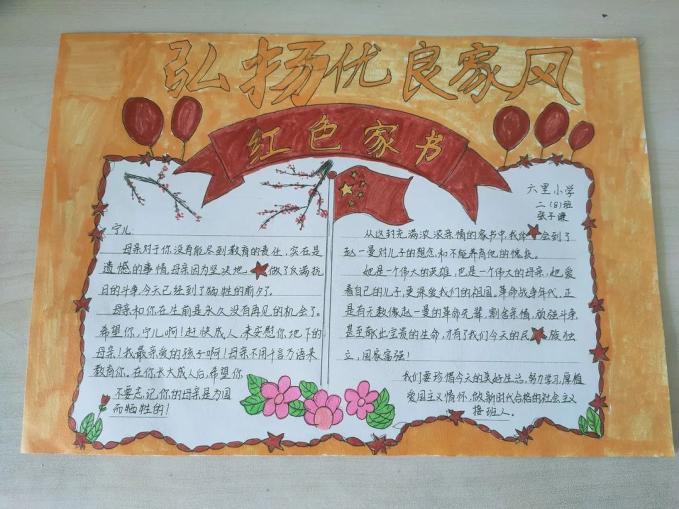 弘扬优良家风
红色家书
宁儿:
母亲对于你没有能尽到教育的责任,实在是
遗憾的事情,母亲因为坚决地做了反满抗
日的斗争,今天已经到了牺牲的前夕了。
母亲和你在生前是永久没有再见的机会了。
希望你,宁儿啊!赶快成人,来安慰你地下的
母亲!我最亲爱的孩子啊!母亲不用千言万语来
教育你。在你长大成人后,希望你
不要忘记你的母亲是为国
而牺牲的!
六里小学
二(8)班
张子
从这封充满浓浓亲情的家书中,我体会到了
赵一曼对儿子的想念和不能养育他的愧疚。
她是一个伟大的英雄,也是一个伟大的母亲,她爱
着自己的儿子,更深爱我们的祖国,革命战争年代,正
是有无数像赵一曼的革命先辈,割舍亲情,顽强斗争
甚至献出宝贵的生命,才有了我们今天的民族独
立,国家富强!
我们要珍惜今天的美好生活,努力学习,厚植
爱国主义情怀,做新时代合格的社会主义
接班人。